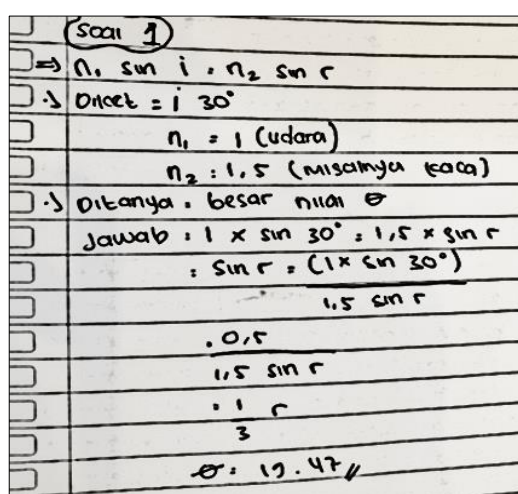 Soal 1
⇒ n₁ sin i = n₂ sin r
•) Diket = i 30°
n₁ = 1 (udara)
n₂ = 1,5 (misalnya kaca)
•) Ditanya = besar nilai θ
Jawab = 1 × sin 30° = 1,5 × sin r
= sin r = (1 × sin 30°)
1,5 sin r
= 0,5
1,5 sin r
= 1 r
3
θ = 19.47 //